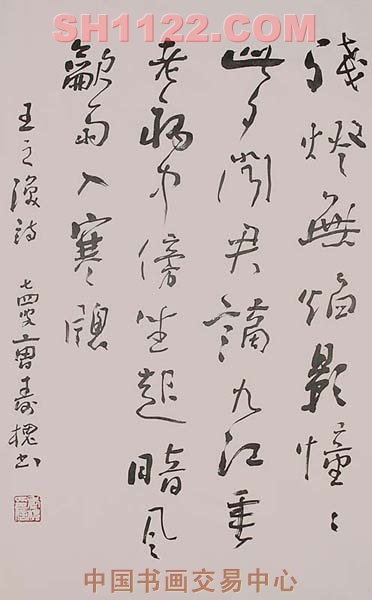 SH1122.COM
殘燈無焰影憧々
此夕聞君謫九江垂
老病中傍坐起暗风
龡雨入寒牕
王之渙詩 七四叟曹寿槐书
中国书画交易中心